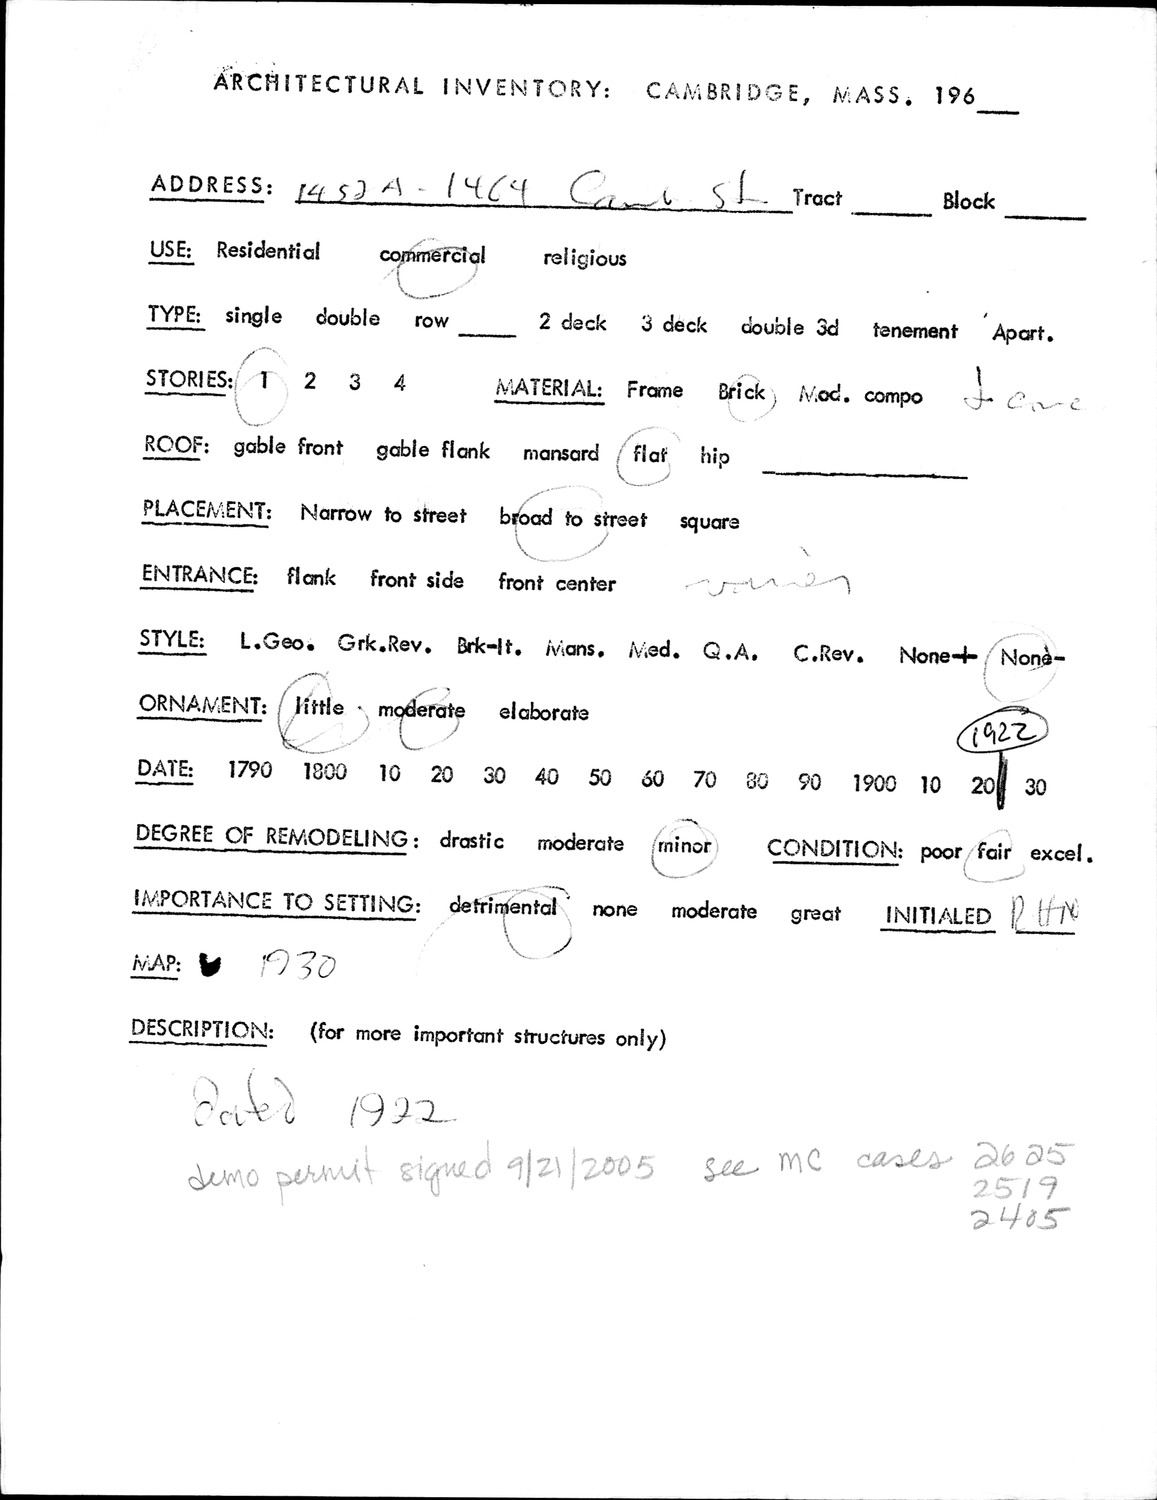 ARCHITECTURAL INVENTORY: CAMBRIDGE, MASS. 196__
ADDRESS: 1452A - 1464 Camb St Tract ____ Block ____
USE: Residential commercial religious
TYPE: single double row ____ 2 deck 3 deck double 3d tenement Apart.
STORIES: 1 2 3 4 MATERIAL: Frame Brick Mod. compo
ROOF: gable front gable flank mansard flat hip ____
PLACEMENT: Narrow to street broad to street square
ENTRANCE: flank front side front center
STYLE: L.Geo. Grk.Rev. Brk-It. Mans. Med. Q.A. C.Rev. None+ None-
ORNAMENT: little moderate elaborate
1922
DATE: 1790 1800 10 20 30 40 50 60 70 80 90 1900 10 20 30
DEGREE OF REMODELING: drastic moderate minor CONDITION: poor fair excel.
IMPORTANCE TO SETTING: detrimental none moderate great INITIALED RHN
MAP: 1930
DESCRIPTION: (for more important structures only)
Dated 1922
demo permit signed 9/21/2005 see MC cases 2625
2519
2405